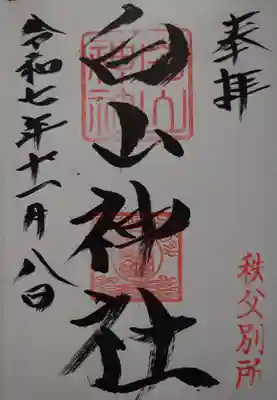 奉拝
秩父別所
白山神社
令和七年十一月八日